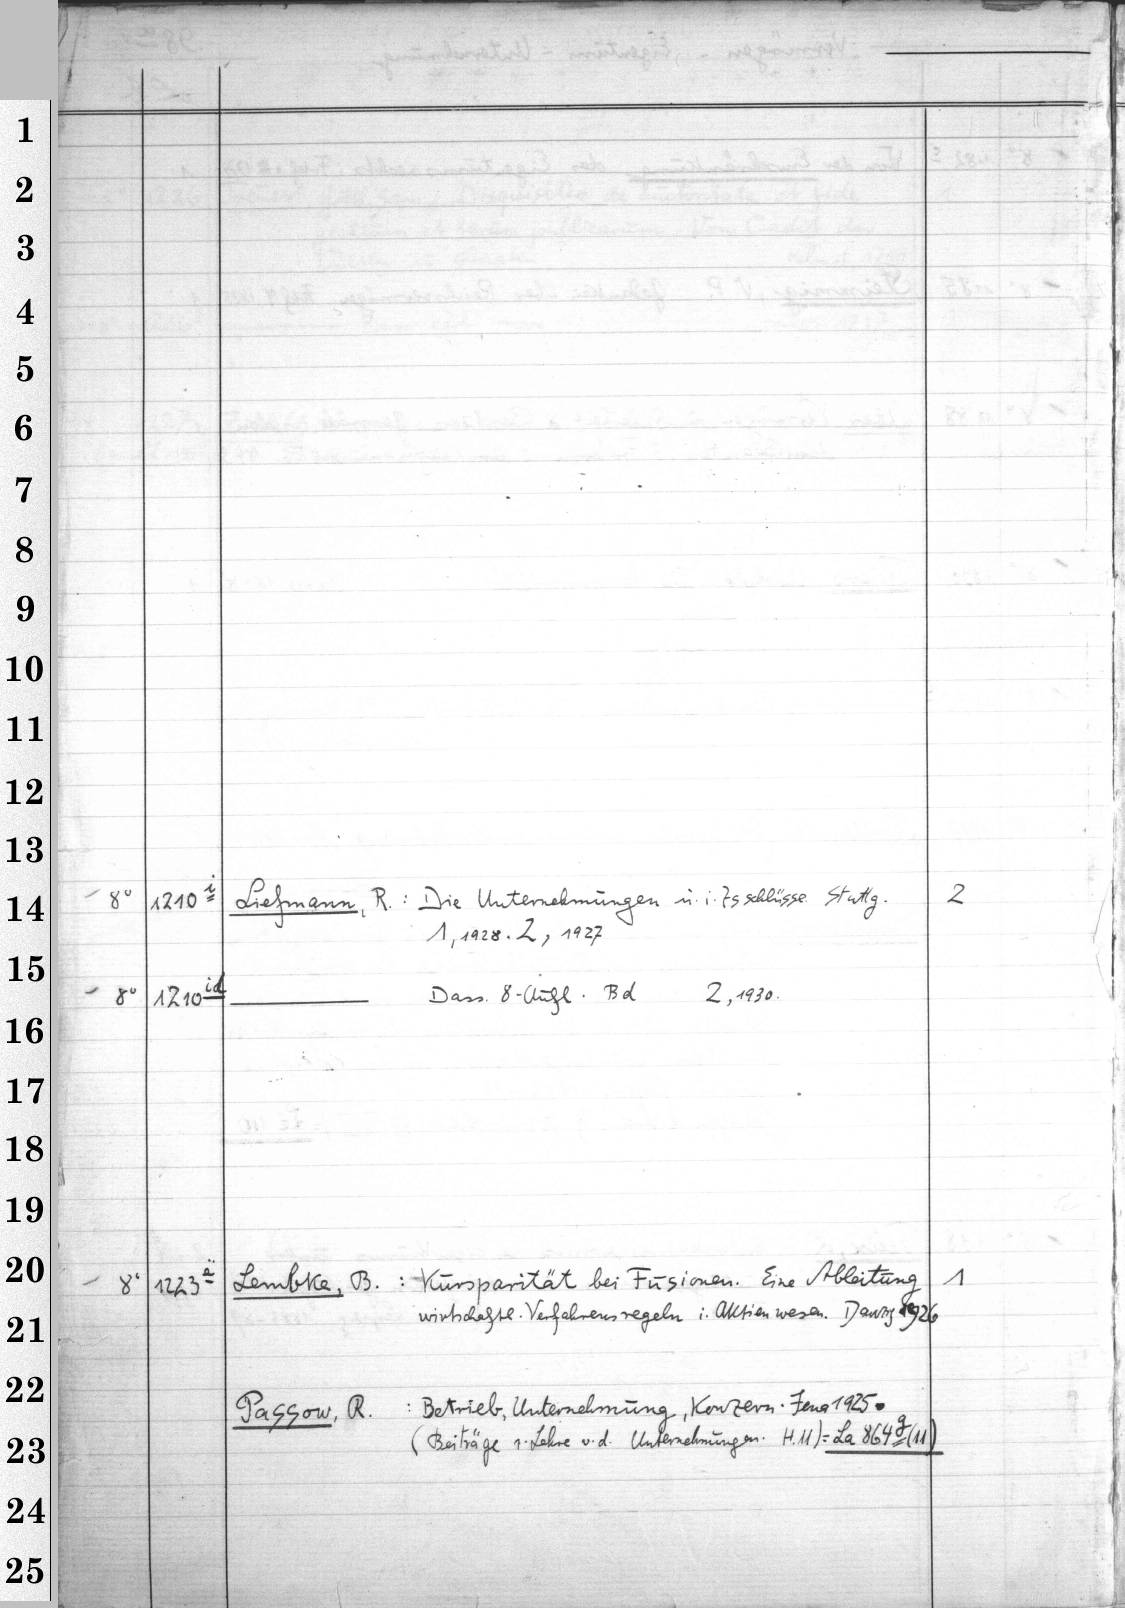 1
2
3
4
5
6
7
8
9
10
11
12
13
8° 1210 i Liefmann, R. : Die Unternehmungen u. i. Zsschlüsse. Stuttg. 2
14
1, 1928. 2, 1927
15
8° 1210 id Dass. 8. Aufl. Bd 2, 1930.
16
17
18
19
20
8° 1223 ä Lembke, B. : Kursparität bei Fusionen. Eine Ableitung 1
wirtschaftl. Verfahrensregeln i. Aktienwesen. Danzig 1926
21
22
Passow, R. : Betrieb, Unternehmung, Konzern. Jena 1925.
(Beiträge z. Lehre v. d. Unternehmungen. H. 11) = La 864 g (11)
23
24
25